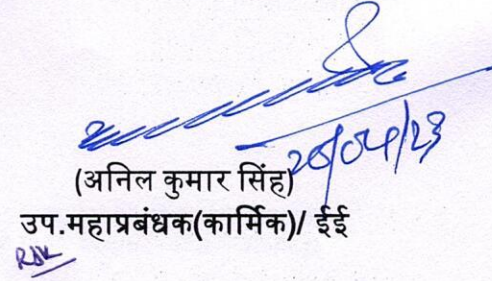 20/04/23
(अनिल कुमार सिंह)
उप.महाप्रबंधक(कार्मिक)/ ईई